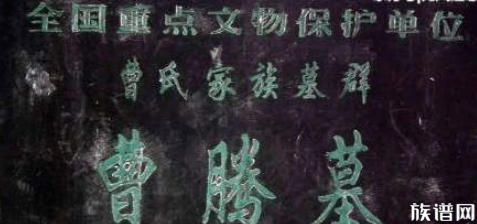 全国重点文物保护单位
曹氏家族墓群
曹腾墓
族谱网